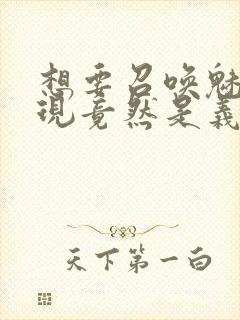 想要召唤魅
现竟然是义
天下第一白